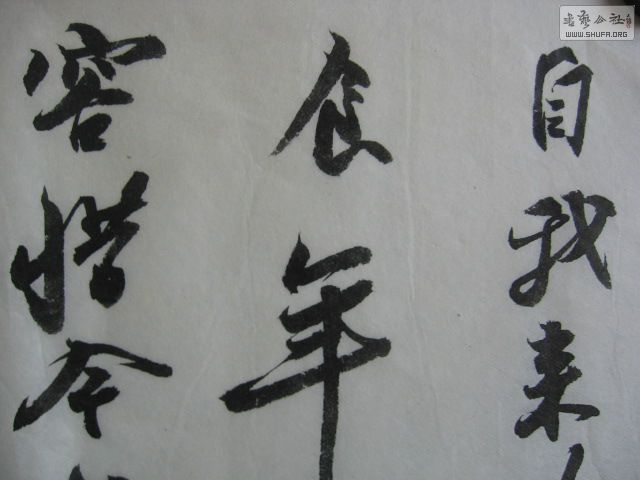 自我来
食年
容惜今
書藝公社
WWW.SHUFA.ORG